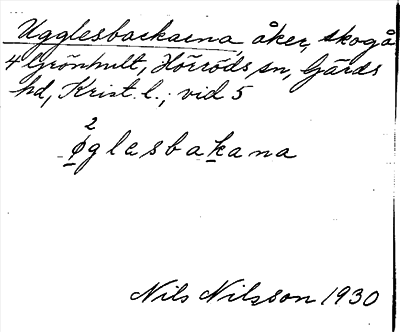 Ugglesbackarna, åker, skogå
4 Grönhult, Hörröds sn, Gärds
hd, Krist. l.; vid 5
2
øglesbakana
Nils Nilsson 1930